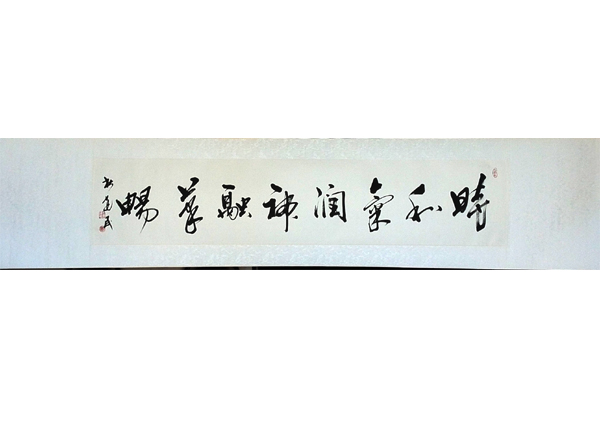 時和氣潤神融筆暢